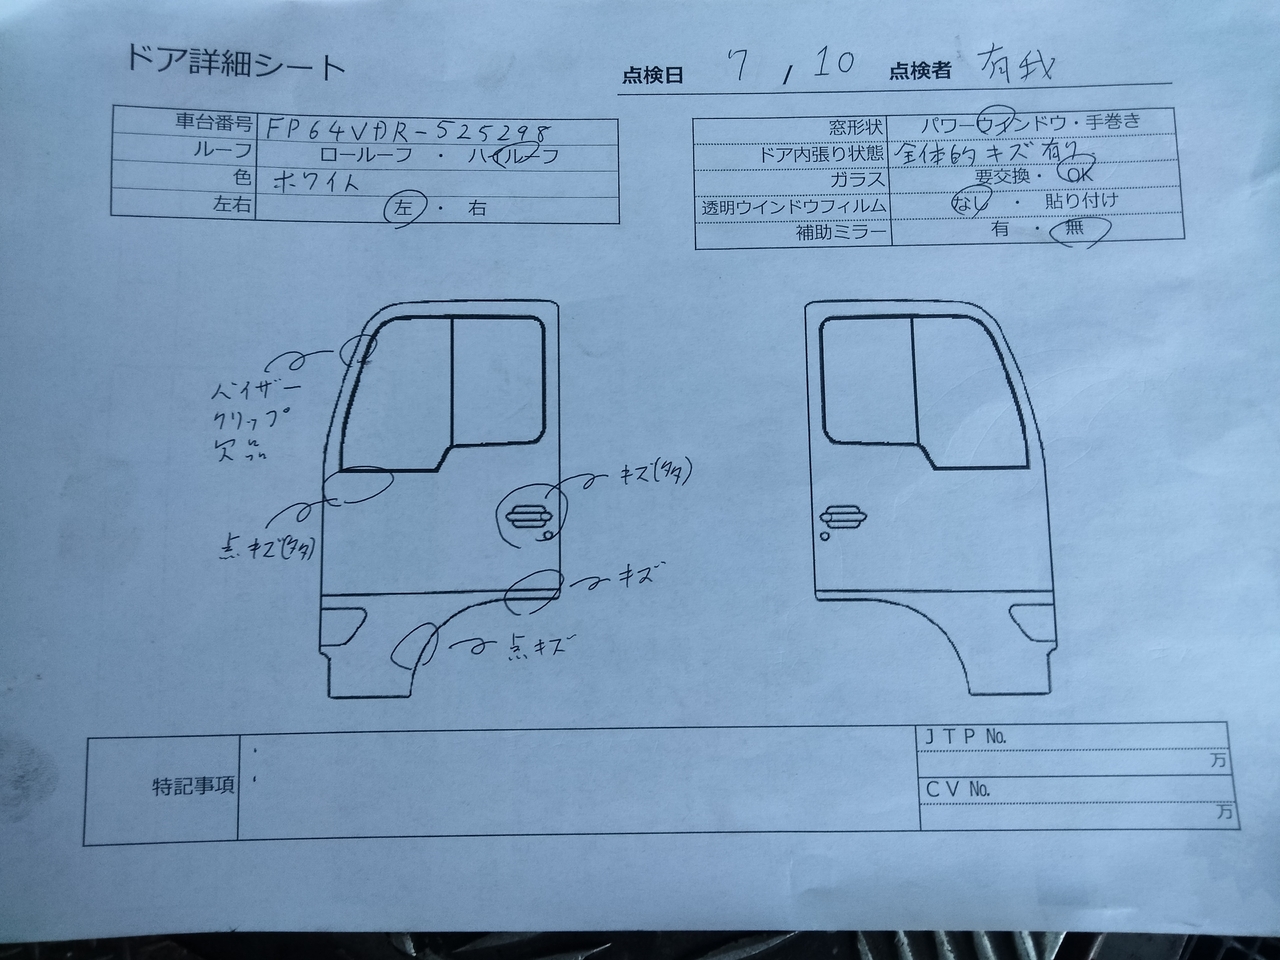 ドア詳細シート
点検日 7 / 10 点検者 有我
車台番号 FP64VDR-525298
ルーフ ロールーフ ・ ハイルーフ
色 ホワイト
左右 左 ・ 右
窓形状 パワーウインドウ・手巻き
ドア内張り状態 全体的キズ有り
ガラス 要交換・ OK
透明ウインドウフィルム なし ・ 貼り付け
補助ミラー 有 ・ 無
バイザー
クリップ
欠品
キズ(多)
点キズ(多)
キズ
点キズ
特記事項
・
・
JTP №
万
CV №
万